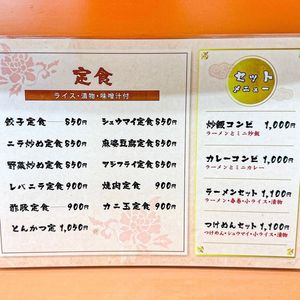 定食
ライス・漬物・味噌汁付
餃子定食 850円
ニラ炒め定食 850円
野菜炒め定食 850円
レバニラ定食 900円
酢豚定食 900円
とんかつ定 1,050円
シュウマイ定食 850円
麻婆豆腐定食 850円
アジフライ定食 850円
焼肉定食 900円
カニ玉定食 900円
セット
メニュー
炒飯コンビ 1,000円
ラーメンとミニ炒飯
カレーコンビ 1,000円
ラーメンとミニカレー
ラーメンセット 1,100円
ラーメン・春巻・小ライス・漬物
つけめんセット 1,100円
つけめん・シュウマイ・小ライス・漬物